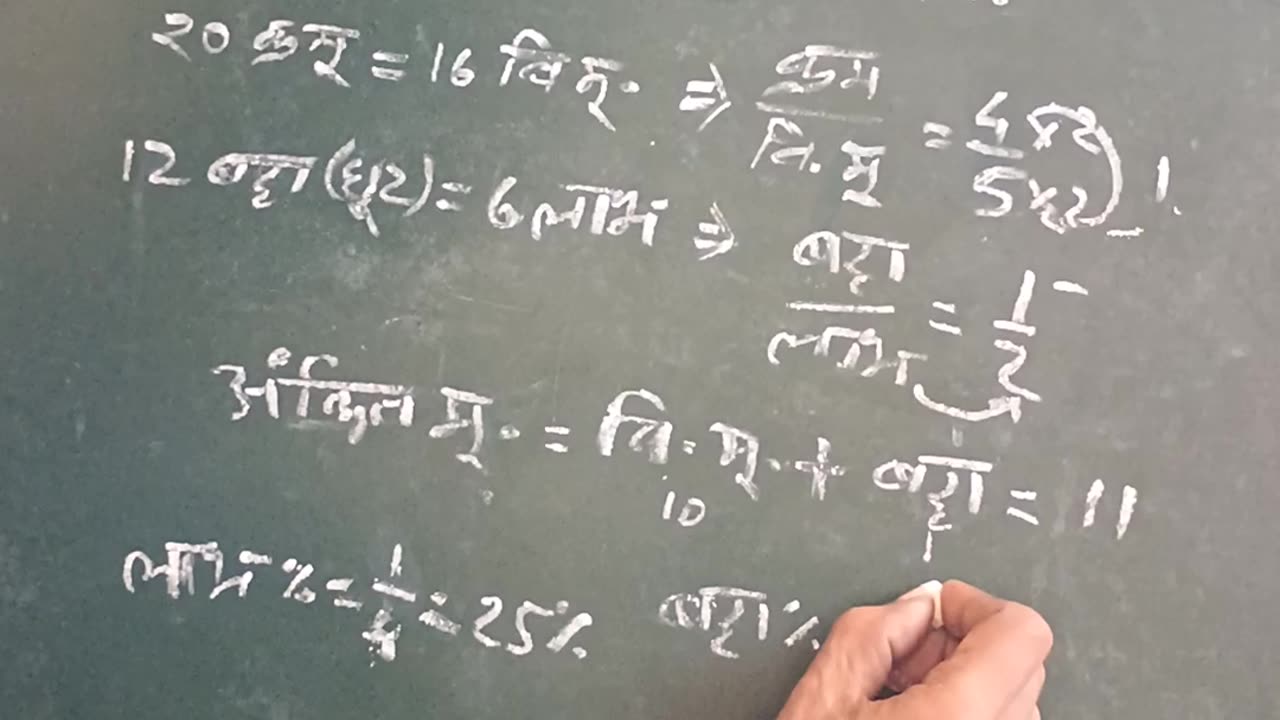 20 क्रमू = 16 वि मू. ⇒ क्रम / वि. मू = 4×2 / 5×2 1
12 बट्टा (छूट) = 6 लाभ ⇒ बट्टा / लाभ = 1 / 2
अंकित मू. = वि. मू. + बट्टा = 11
10 1
लाभ % = 1 / 4 = 25% बट्टा %